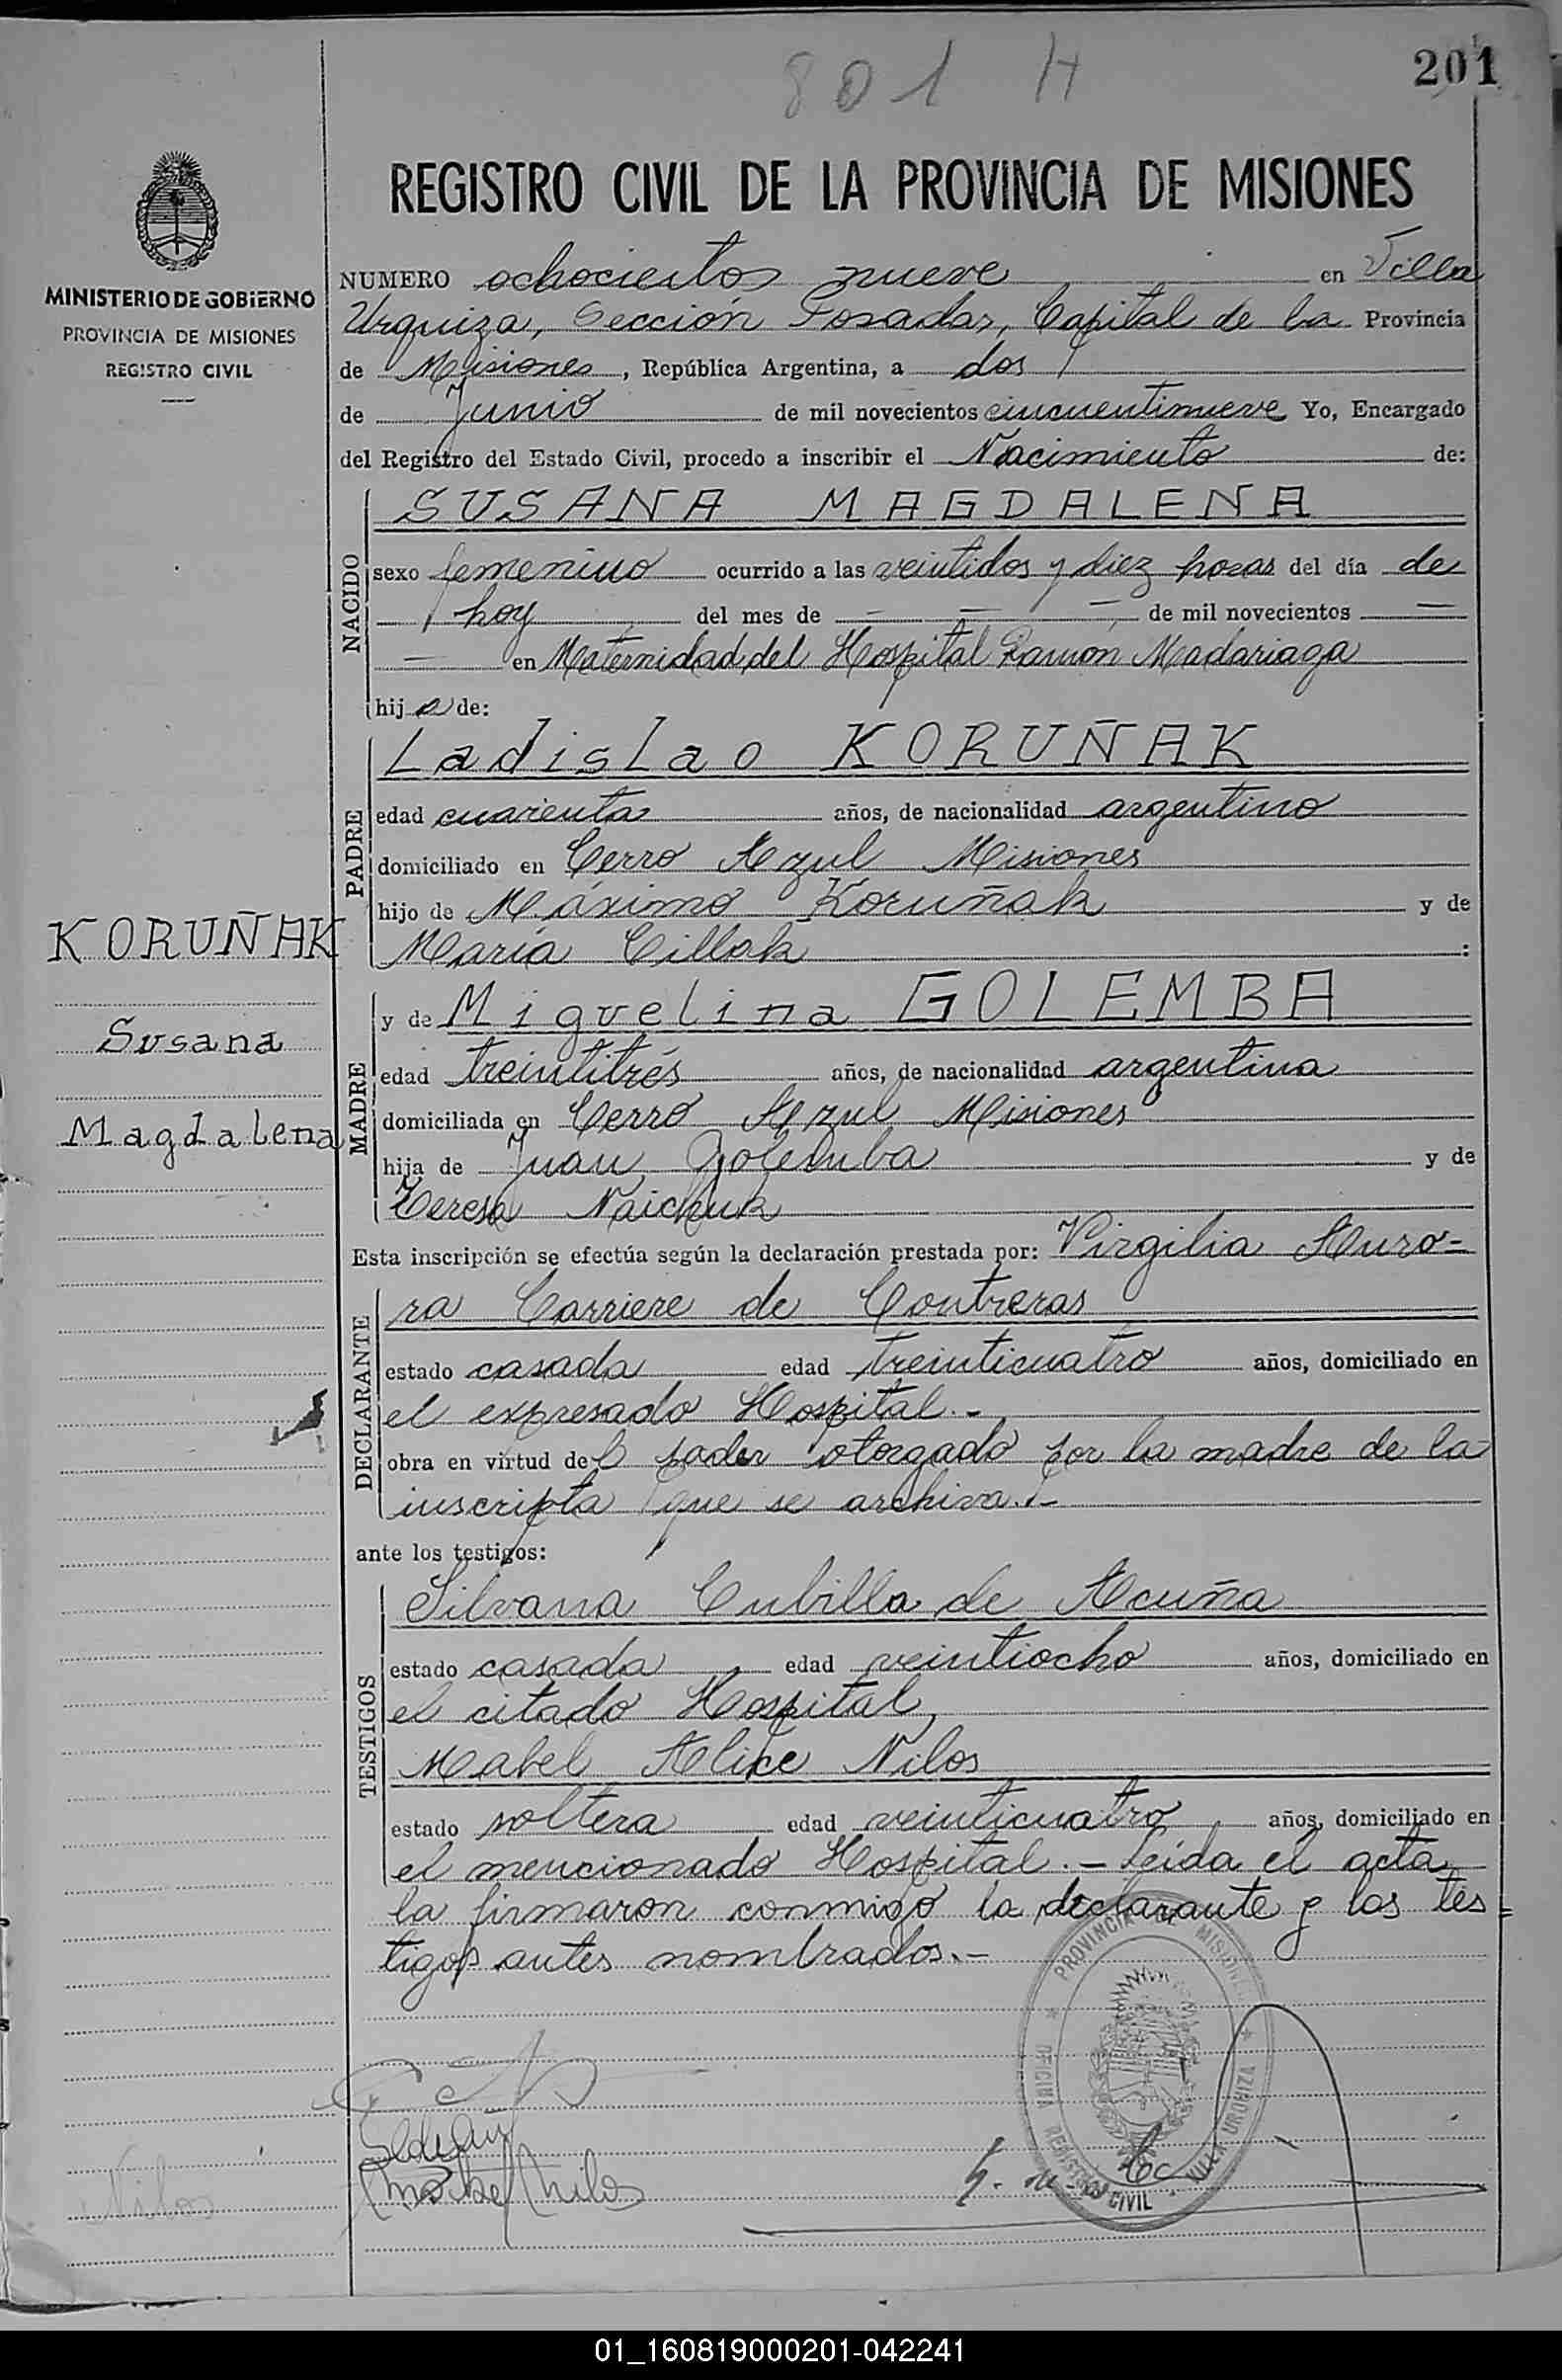 801 H
201
MINISTERIO DE GOBIERNO
PROVINCIA DE MISIONES
REGISTRO CIVIL
REGISTRO CIVIL DE LA PROVINCIA DE MISIONES
NUMERO ochocientos nueve en Villa
Urquiza, Sección Posadas, Capital de la Provincia
de Misiones, República Argentina, a dos
de Junio de mil novecientos cincuentinueve Yo, Encargado
del Registro del Estado Civil, procedo a inscribir el Nacimiento de:
NACIDO
SUSANA MAGDALENA
sexo femenino ocurrido a las veintidos y diez horas del día de
hoy del mes de — — — de mil novecientos —
— en Maternidad del Hospital Ramón Madariaga
hija de:
PADRE
Ladislao KORUÑAK
edad cuarenta años, de nacionalidad argentino
domiciliado en Cerro Azul Misiones
hijo de Máximo Koruñak y de
María Cillak :
KORUÑAK
Susana
Magdalena
MADRE
y de Miguelina GOLEMBA
edad treintitrés años, de nacionalidad argentina
domiciliada en Cerro Azul Misiones
hija de Juan Golemba y de
Teresa Naichuk
Esta inscripción se efectúa según la declaración prestada por: Virgilia Auro=
DECLARANTE
ra Carriere de Contreras
estado casada edad treinticuatro años, domiciliado en
el expresado Hospital.-
obra en virtud del poder otorgado por la madre de la
inscripta que se archiva.-
ante los testigos:
TESTIGOS
Silvana Cubilla de Acuña
estado casada edad veintiocho años, domiciliado en
el citado Hospital,
Mabel Alice Nilos
estado soltera edad veinticuatro años, domiciliado en
el mencionado Hospital.- Leída el acta
la firmaron conmigo la declarante y los tes=
tigos antes nombrados.-
PROVINCIA DE MISIONES
OFICINA REGISTRO CIVIL VILLA URQUIZA
Mabel Nilos
Nilos
01_160819000201-042241